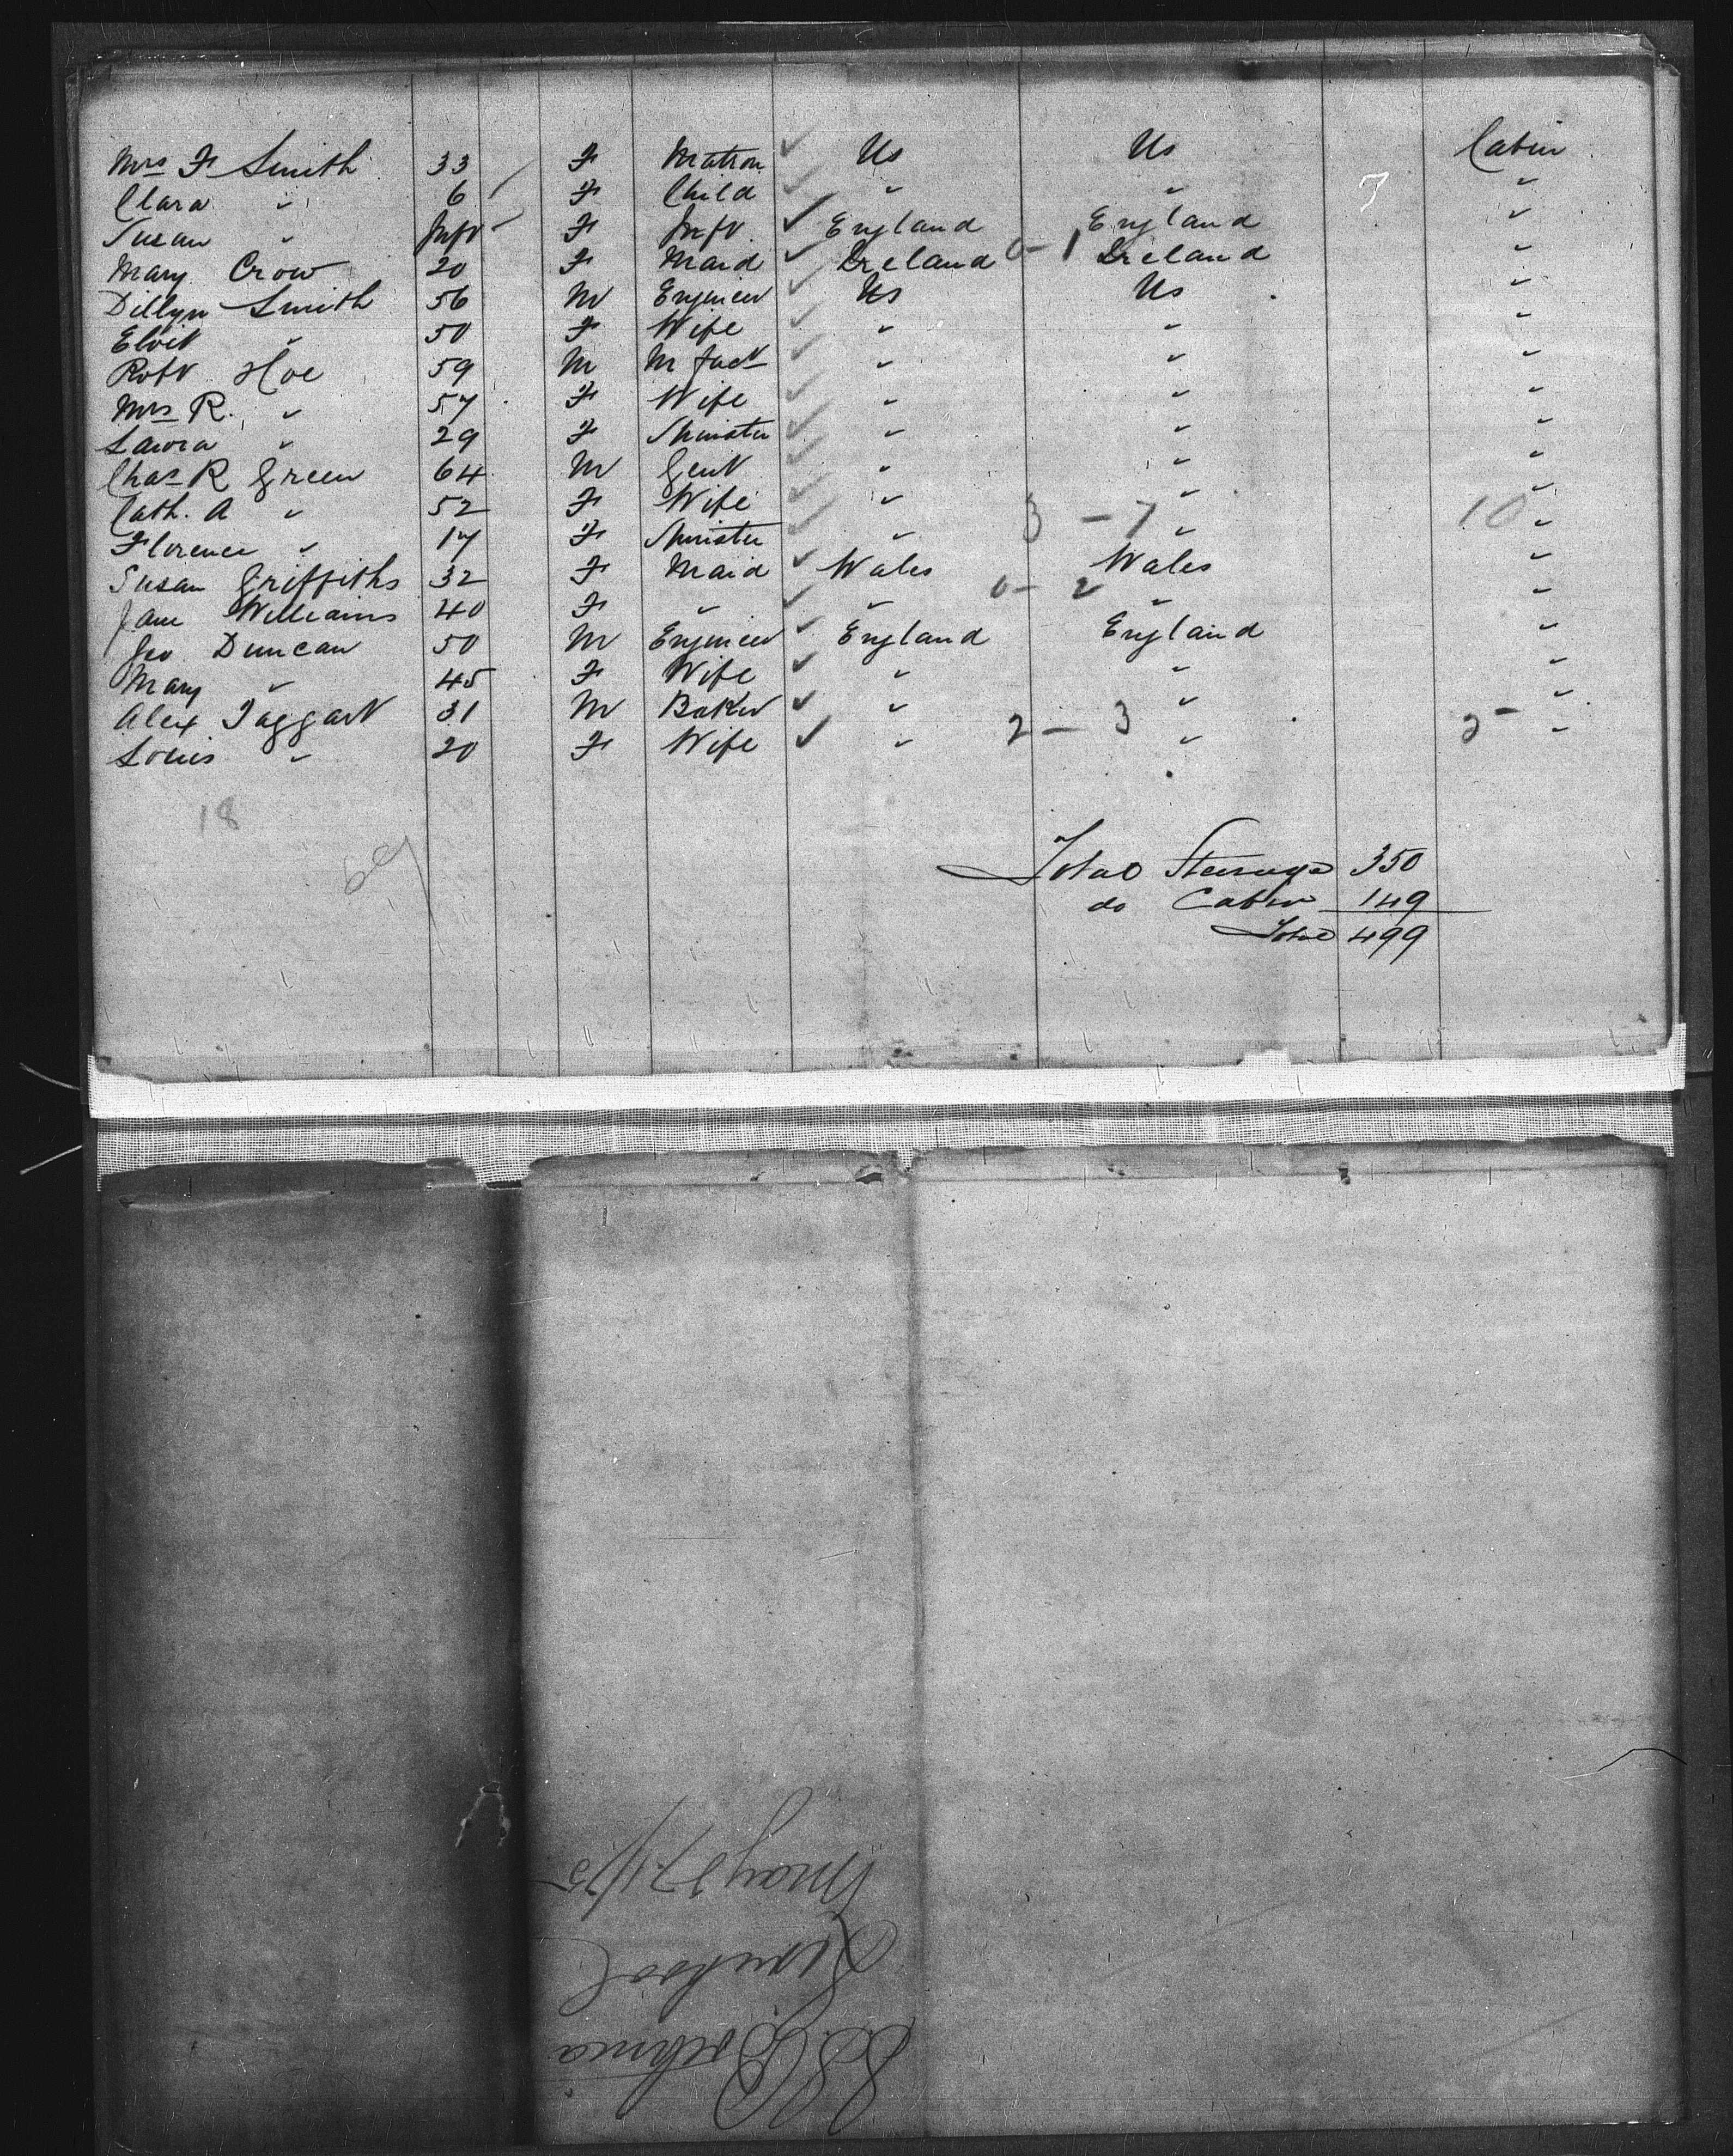 Mrs F Smith 33 F Matron Us Us Cabin
Clara " 6 F Child " " 7 "
Susan " Inft F Inft England England "
Mary Crow 20 F Maid Ireland 0-1 Ireland "
Dillyn Smith 56 M Engineer Us Us "
" 50 F Wife " " "
Robt Hoe 59 M M fact " " "
Mrs R. " 57 F Wife " " "
Laura " 29 F Spinster " " "
Chas R Green 64 M Gent " " "
Cath. A " 52 F Wife " " "
Florence " 17 F Spinster " 3-7 " 10 "
Susan Griffiths 32 F Maid Wales Wales "
Jane Williams 40 F " " 0-2 " "
Geo Duncan 50 M Engineer England England "
Mary " 45 F Wife " " "
Alex Taggart 31 M Baker " " "
Louis " 20 F Wife " 2-3 " "
18
Total Steerage 350
do Cabin 149
Total 499
SS Bothnia
Liverpool
May